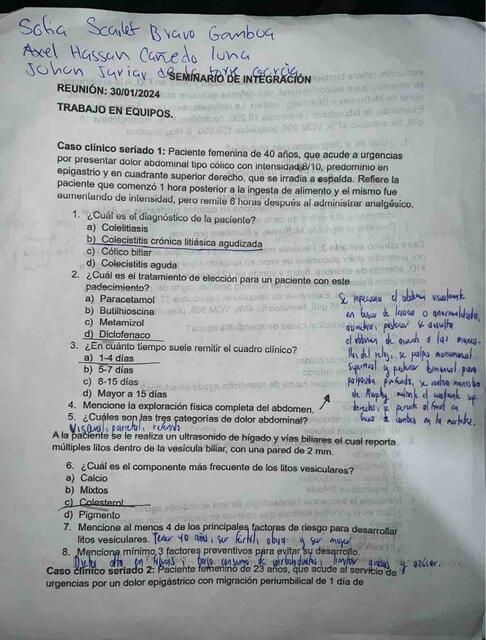 Sofia Scarlet Bravo Gamboa
Axel Hassan Cañedo luna
Johan Javiar de la torre Garcia
SEMINARIO DE INTEGRACIÓN
REUNIÓN: 30/01/2024
TRABAJO EN EQUIPOS.
Caso clínico seriado 1: Paciente femenina de 40 años, que acude a urgencias
por presentar dolor abdominal tipo cólico con intensidad 8/10, predominio en
epigastrio y en cuadrante superior derecho, que se irradia a espalda. Refiere la
paciente que comenzó 1 hora posterior a la ingesta de alimento y el mismo fue
aumentando de intensidad, pero remite 6 horas después al administrar analgésico.
1. ¿Cuál es el diagnóstico de la paciente?
a) Colelitiasis
b) Colecistitis crónica litiásica agudizada
c) Cólico biliar
d) Colecistitis aguda
2. ¿Cuál es el tratamiento de elección para un paciente con este
padecimiento?
a) Paracetamol
b) Butilhioscina
c) Metamizol
d) Diclofenaco
3. ¿En cuánto tiempo suele remitir el cuadro clínico?
a) 1-4 días
b) 5-7 días
c) 8-15 días
d) Mayor a 15 días
Se inspecciona el abdomen visualmente
en busca de lesiones o anormalidades,
posterior se ausculta
el abdomen de acuerdo a las manecillas
del reloj, se palpa monomanual
superficial y posterior bimanual para
palpación profunda, se
de Murphy en el cuadrante sup.
derecho, se percute al final en
busca de cambios en la matidez.
4. Mencione la exploración física completa del abdomen.
5. ¿Cuáles son las tres categorías de dolor abdominal?
Visceral, parietal, referido
A la paciente se le realiza un ultrasonido de hígado y vías biliares el cual reporta
múltiples litos dentro de la vesícula biliar, con una pared de 2 mm.
6. ¿Cuál es el componente más frecuente de los litos vesiculares?
a) Calcio
b) Mixtos
c) Colesterol
d) Pigmento
7. Mencione al menos 4 de los principales factores de riesgo para desarrollar
litos vesiculares. Tener 40 años, ser fértil, obesa y ser mujer
8. Mencione mínimo 3 factores preventivos para evitar su desarrollo.
Dieta alta en fibras, bajo consumo de carbohidratos, limitar grasas y azúcar.
Caso clínico seriado 2: Paciente femenino de 23 años, que acude al servicio de
urgencias por un dolor epigástrico con migración periumbilical de 1 día de